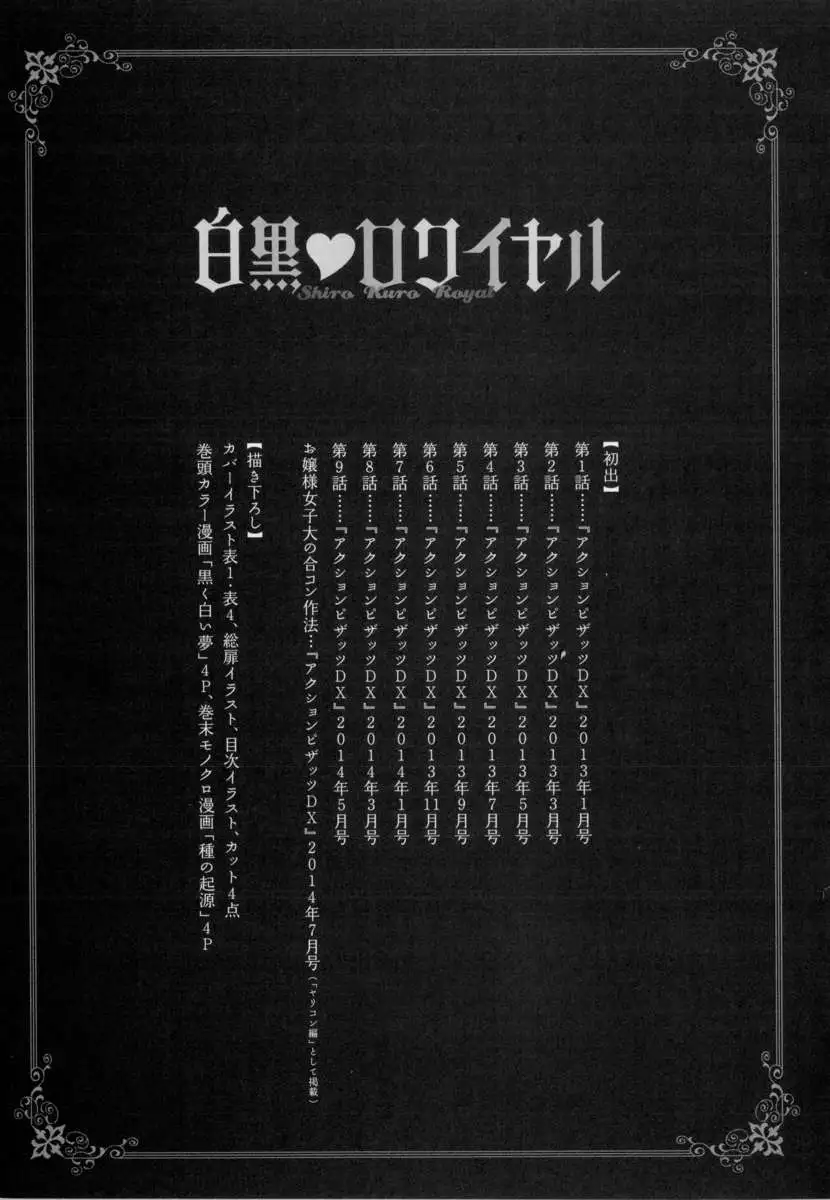 白黒♥ロワイヤル
Shiro Kuro Royal
【初出】
第1話……『アクションピザッツDX』2013年1月号
第2話……『アクションピザッツDX』2013年3月号
第3話……『アクションピザッツDX』2013年5月号
第4話……『アクションピザッツDX』2013年7月号
第5話……『アクションピザッツDX』2013年9月号
第6話……『アクションピザッツDX』2013年11月号
第7話……『アクションピザッツDX』2014年1月号
第8話……『アクションピザッツDX』2014年3月号
第9話……『アクションピザッツDX』2014年5月号
お嬢様女子大の合コン作法…『アクションピザッツDX』2014年7月号(「ヤリコン編」として掲載)
【描き下ろし】
カバーイラスト表1・表4、総扉イラスト、目次イラスト、カット4点
巻頭カラー漫画「黒く白い夢」4P、巻末モノクロ漫画「種の起源」4P